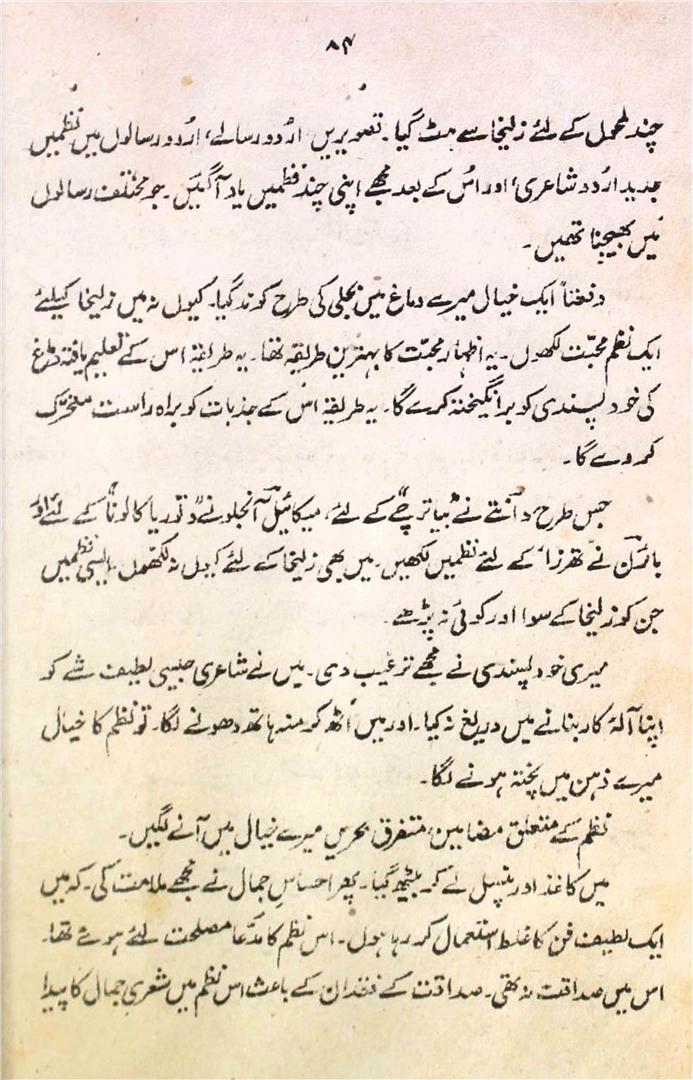 ۸۴
چند لمحوں کے لئے زلیخا سے ہٹ گیا۔ تصویریں، اردو رسالے، اردو رسالوں میں نظمیں
جدید اردو شاعری، اور اُس کے بعد مجھے اپنی چند نظمیں یاد آگئیں۔ جو مختلف رسالوں
میں بھیجنا تھیں۔
دفعتاً ایک خیال میرے دماغ میں بجلی کی طرح کوند گیا۔ کیوں نہ میں زلیخا کیلئے
ایک نظم محبّت لکھوں۔ یہ اظہارِ محبّت کا بہترین طریقہ تھا۔ یہ طریقہ اس کے تعلیم یافتہ دماغ
کی خود پسندی کو برانگیختہ کرے گا۔ یہ طریقہ اس کے جذبات کو براہ راست متحرّک
کر دے گا۔
جس طرح دآنتے نے "بیاترچے" کے لئے، میکائیل آنجلو نے "وتوریا کالونا" کے لئے اور
بائرن نے "تھرزا" کے لئے نظمیں لکھیں۔ میں بھی زلیخا کے لئے کیوں نہ لکھوں۔ ایسی نظمیں
جن کو زلیخا کے سوا اور کوئی نہ پڑھے۔
میری خود پسندی نے مجھے ترغیب دی۔ میں نے شاعری جیسی لطیف شے کو
اپنا آلۂ کار بنانے میں دریغ نہ کیا۔ اور میں اُٹھ کر منہ ہاتھ دھونے لگا۔ تو نظم کا خیال
میرے ذہن میں پختہ ہونے لگا۔
نظم کے متعلق مضامین، متفرق بحریں میرے خیال میں آنے لگیں۔
میں کاغذ اور پنسل لے کر بیٹھ گیا۔ پھر احساسِ جمال نے مجھے ملامت کی۔ کہ میں
ایک لطیف فن کا غلط استعمال کر رہا ہوں۔ اس نظم کا مدّعا مصلحت لئے ہوئے تھا۔
اس میں صداقت نہ تھی۔ صداقت کے فقدان کے باعث اس نظم میں شعری جمال کا پیدا